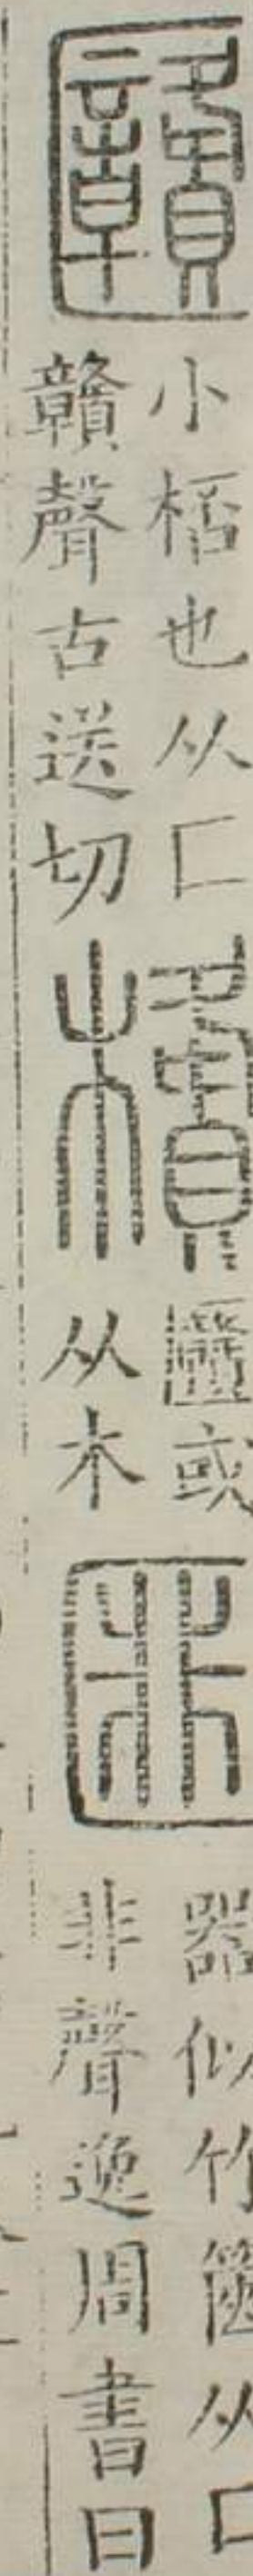 㔶
小桮也从匚
贛聲古送切
㯯
㔶或
从木
匪
器似竹篋从匚
非聲逸周書曰